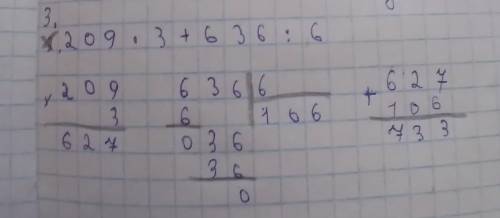 3.
209 · 3 + 636 : 6
× 209   636 | 6   + 627
3   6   106   106
627   036   733
36
0